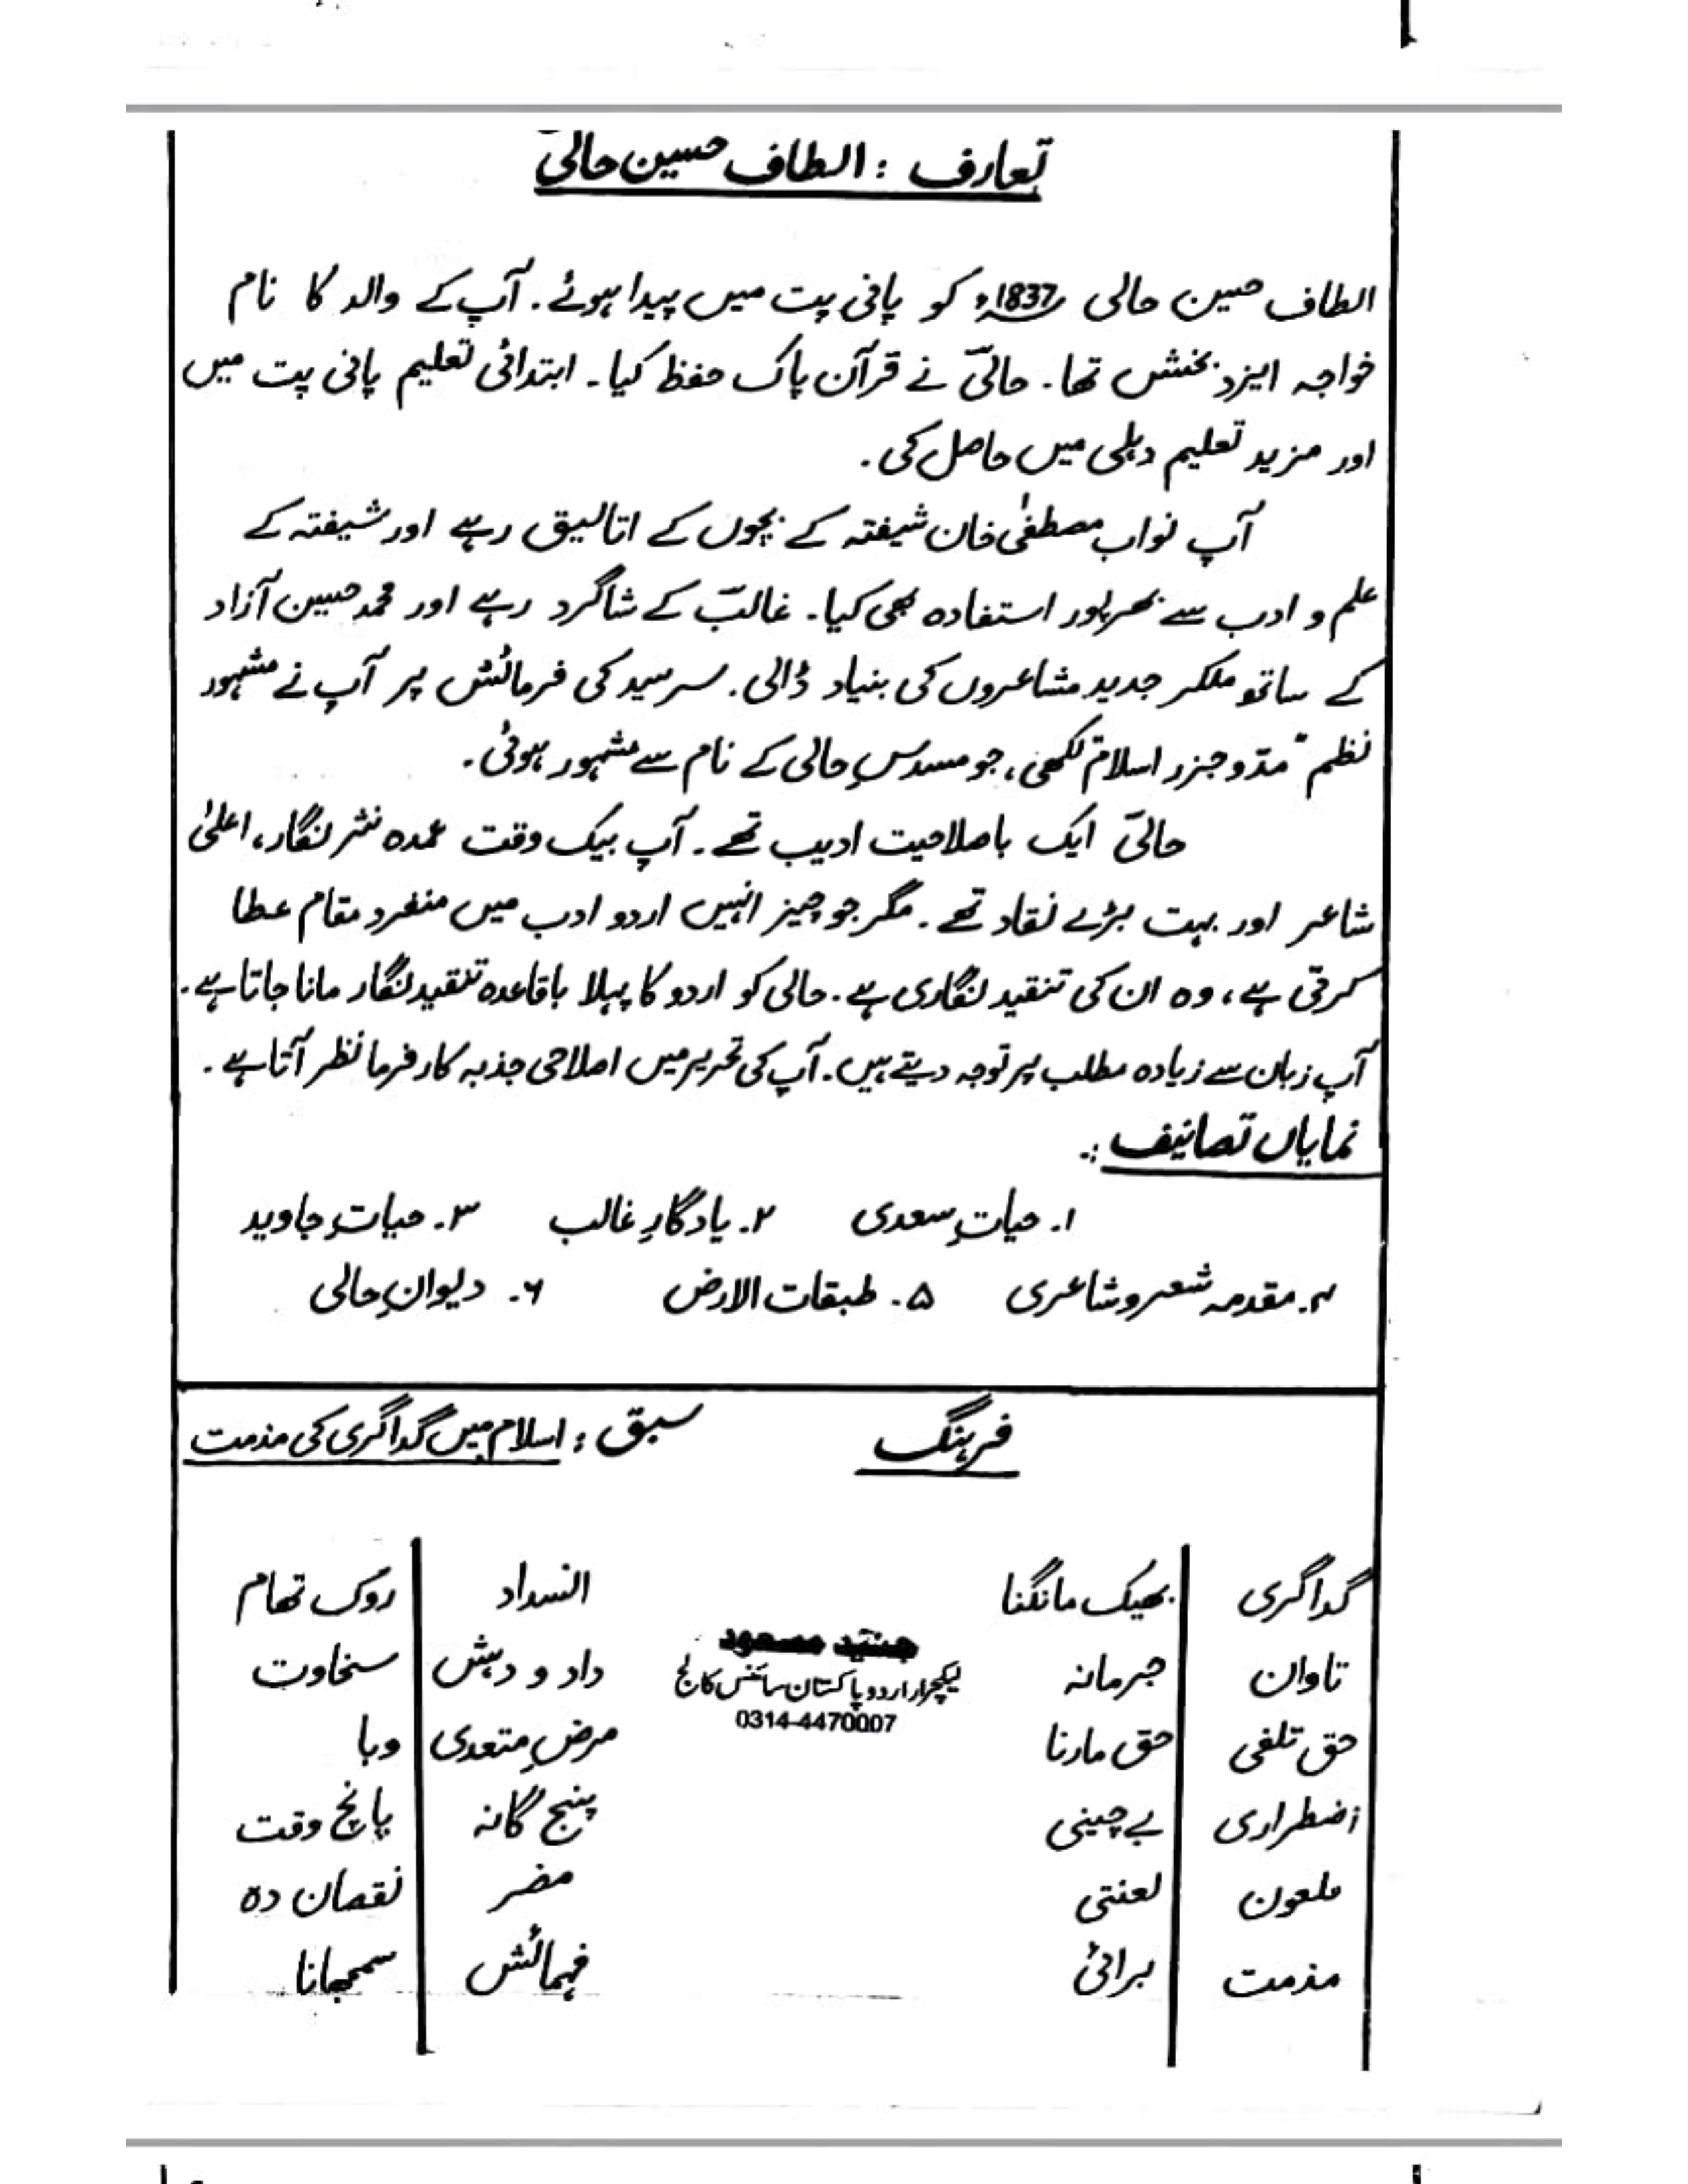 تعارف : الطاف حسین حالیؔ
الطاف حسین حالی 1837ء کو پانی پت میں پیدا ہوئے۔ آپ کے والد کا نام
خواجہ ایزد بخش تھا۔ حالیؔ نے قرآن پاک حفظ کیا۔ ابتدائی تعلیم پانی پت میں
اور مزید تعلیم دہلی میں حاصل کی۔
آپ نواب مصطفٰی خان شیفتہ کے بچوں کے اتالیق رہے اور شیفتہ کے
علم و ادب سے بھرپور استفادہ بھی کیا۔ غالبؔ کے شاگرد رہے اور محمد حسین آزاد
کے ساتھ ملکر جدید مشاعروں کی بنیاد ڈالی۔ سرسید کی فرمائش پر آپ نے مشہور
نظم "مدّوجزر اسلام" لکھی، جو مسدسِ حالی کے نام سے مشہور ہوئی۔
حالیؔ ایک باصلاحیت ادیب تھے۔ آپ بیک وقت عمدہ نثر نگار، اعلیٰ
شاعر اور بہت بڑے نقاد تھے۔ مگر جو چیز انہیں اردو ادب میں منفرد مقام عطا
کرتی ہے، وہ ان کی تنقید نگاری ہے۔ حالی کو اردو کا پہلا باقاعدہ تنقید نگار مانا جاتا ہے۔
آپ زبان سے زیادہ مطلب پر توجہ دیتے ہیں۔ آپ کی تحریر میں اصلاحی جذبہ کارفرما نظر آتا ہے۔
نمایاں تصانیف :۔
۱۔ حیاتِ سعدی ۲۔ یادگارِ غالب ۳۔ حیاتِ جاوید
۴۔ مقدمہ شعر و شاعری ۵۔ طبقات الارض ۶۔ دیوانِ حالی
فرہنگ سبق : اسلام میں گداگری کی مذمت
گداگری بھیک مانگنا انسداد روک تھام
جنید مسعود
تاوان جرمانہ داد و دہش سخاوت
لیکچرار اردو پاکستان سائنس کالج
0314-4470007
حق تلفی حق مارنا مرضِ متعدی وبا
اضطراری بے چینی پنج گانہ پانچ وقت
ملعون لعنتی مضر نقصان دہ
مذمت برائی فہمائش سمجھانا